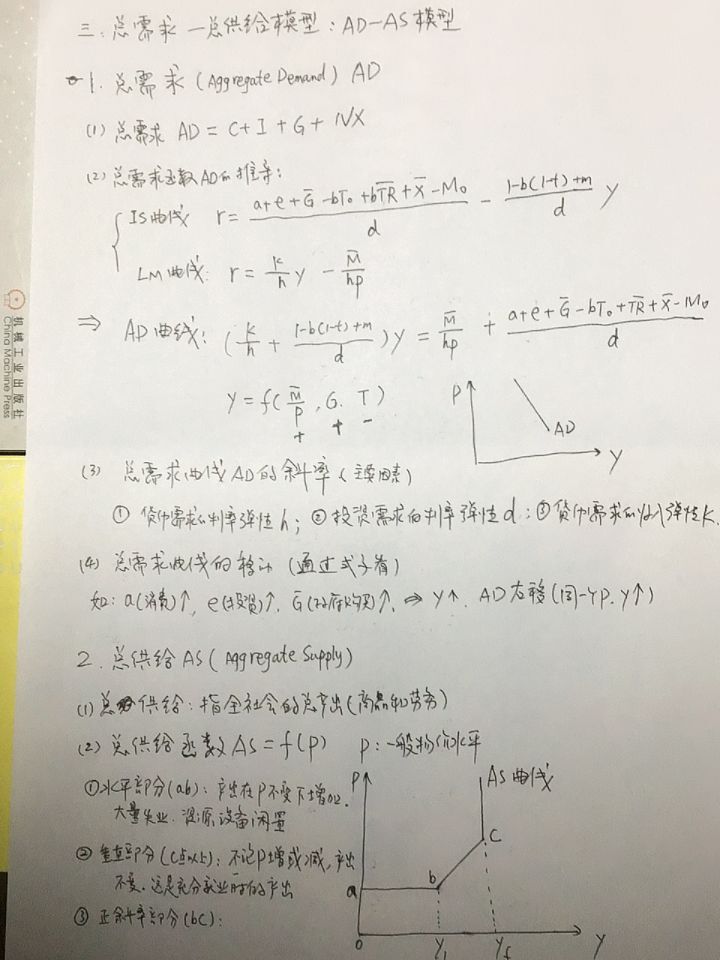 三. 总需求—总供给模型: AD-AS模型
1. 总需求 (Aggregate Demand) AD
(1) 总需求 AD = C+I+G+NX
(2) 总需求函数AD的推导:
IS曲线 r = (a+e+Ḡ-bT₀+bT̅R̅+X̄-M₀)/d - (1-b(1-t)+m)/d Y
LM曲线: r = k/h y - M̄/hp
⇒ AD曲线: (k/h + (1-b(1-t)+m)/d)Y = M̄/hp + (a+e+Ḡ-bT₀+T̅R̅+X̄-M₀)/d
Y = f(M̄/P, G. T)
+ + -
P
AD
Y
(3) 总需求曲线AD的斜率 (主要因素)
① 货币需求的利率弹性h; ② 投资需求的利率弹性d; ③ 货币需求的收入弹性k.
(4) 总需求曲线的移动 (通过式子看)
如: a(消费)↑, e(投资)↑, Ḡ(政府购买)↑, ⇒ Y↑. AD右移(同一个P. Y↑)
2. 总供给AS (Aggregate Supply)
(1) 总供给: 指全社会的总产出(商品和劳务)
(2) 总供给函数AS = f(P) P: 一般物价水平
①水平部分(ab): 产出在P不变下增加.
大量失业. 资源设备闲置
② 垂直部分(C点以上): 不论P增或减, 产出
不变. 这是充分就业时的产出
③ 正斜率部分(bC):
P
AS曲线
C
b
a
0
Y₁
Yf
Y
机械工业出版社
China Machine Press